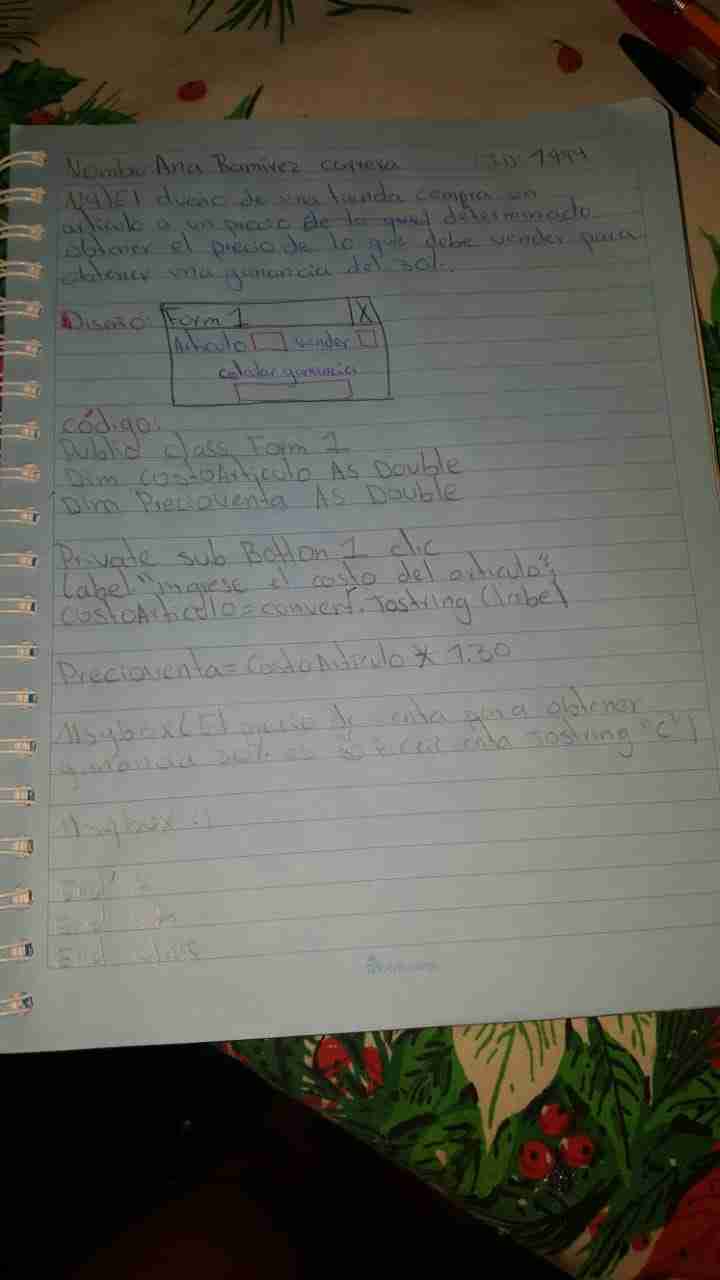 Nombre Ana Ramirez correra ID: 1994
El dueño de una tienda compra un
articulo a un precio de lo que determinado
obtener el precio de lo que debe vender para
obtener una ganancia del 30%.
Diseño: Form 1 X
Articulo vender
calcular ganancia
código:
Public class Form 1
Dim CostoArticulo As Double
Dim Precioventa As Double
Private sub Botton 1 clic
Label "ingrese el costo del articulo"
CostoArticulo = convert.Tostring (label
Precioventa = CostoArticulo * 1.30
Msgbox (El precio de venta para obtener
ganancia Tostring "C")
Msgbox
End
End
End class